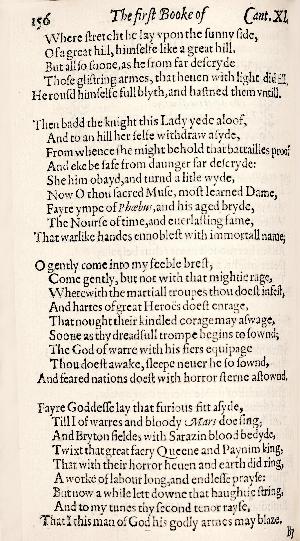 156 The first Booke of Cant. XI.
Where stretcht he lay vpon the sunny side,
Of a great hill, himselfe like a great hill.
But all so soone, as he from far descryde
Those glistring armes, that heuen with light did fill,
He rousd himselfe full blyth, and hastned them vntill.
Then badd the knight this Lady yede aloof,
And to an hill her selfe withdraw asyde,
From whence she might behold that battailles proof
And eke be safe from daunger far descryde:
She him obayd, and turnd a litle wyde,
Now O thou sacred Muse, most learned Dame,
Fayre ympe of Phœbus, and his aged bryde,
The Nourse of time, and euerlasting fame,
That warlike handes ennoblest with immortall name;
O gently come into my feeble brest,
Come gently, but not with that mightie rage,
Wherewith the martiall troupes thou doest infest,
And hartes of great Heroës doest enrage,
That nought their kindled corage may aswage,
Soone as thy dreadfull trompe begins to sownd;
The God of warre with his fiers equipage
Thou doest awake, sleepe neuer he so sownd,
And feared nations doest with horror sterne astownd.
Fayre Goddesse lay that furious fitt asyde,
Till I of warres and bloody Mars doe sing,
And Bryton fieldes with Sarazin blood bedyde,
Twixt that great faery Queene and Paynim king,
That with their horror heuen and earth did ring,
A worke of labour long, and endlesse prayse:
But now a while lett downe that haughtie string,
And to my tunes thy second tenor rayse,
That I this man of God his godly armes may blaze.
By